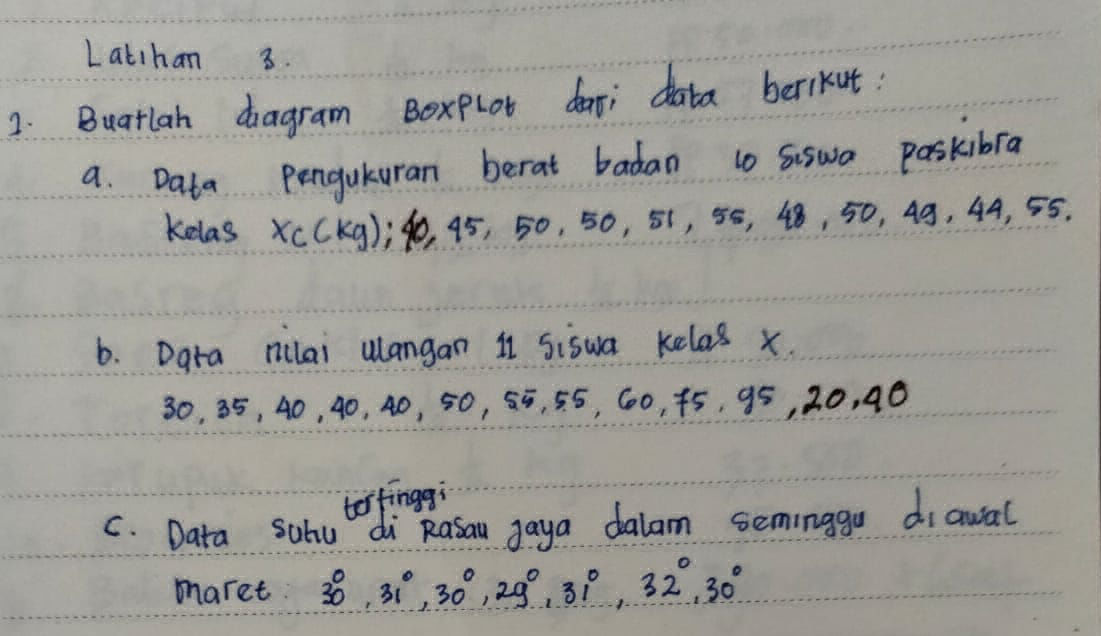 Latihan 3.
1. Buatlah diagram BOXPLOt dari data berikut:
a. Data pengukuran berat badan 10 siswa paskibra
kelas XC (kg); 40, 45, 50, 50, 51, 55, 48, 50, 49, 44, 55.
b. Data nilai ulangan 11 siswa kelas X.
30, 35, 40, 40, 40, 50, 55, 55, 60, 75, 95, 20, 90
tertinggi
c. Data suhu di Rasau jaya dalam seminggu di awal
maret 30°, 31°, 30°, 29°, 31°, 32°, 30°